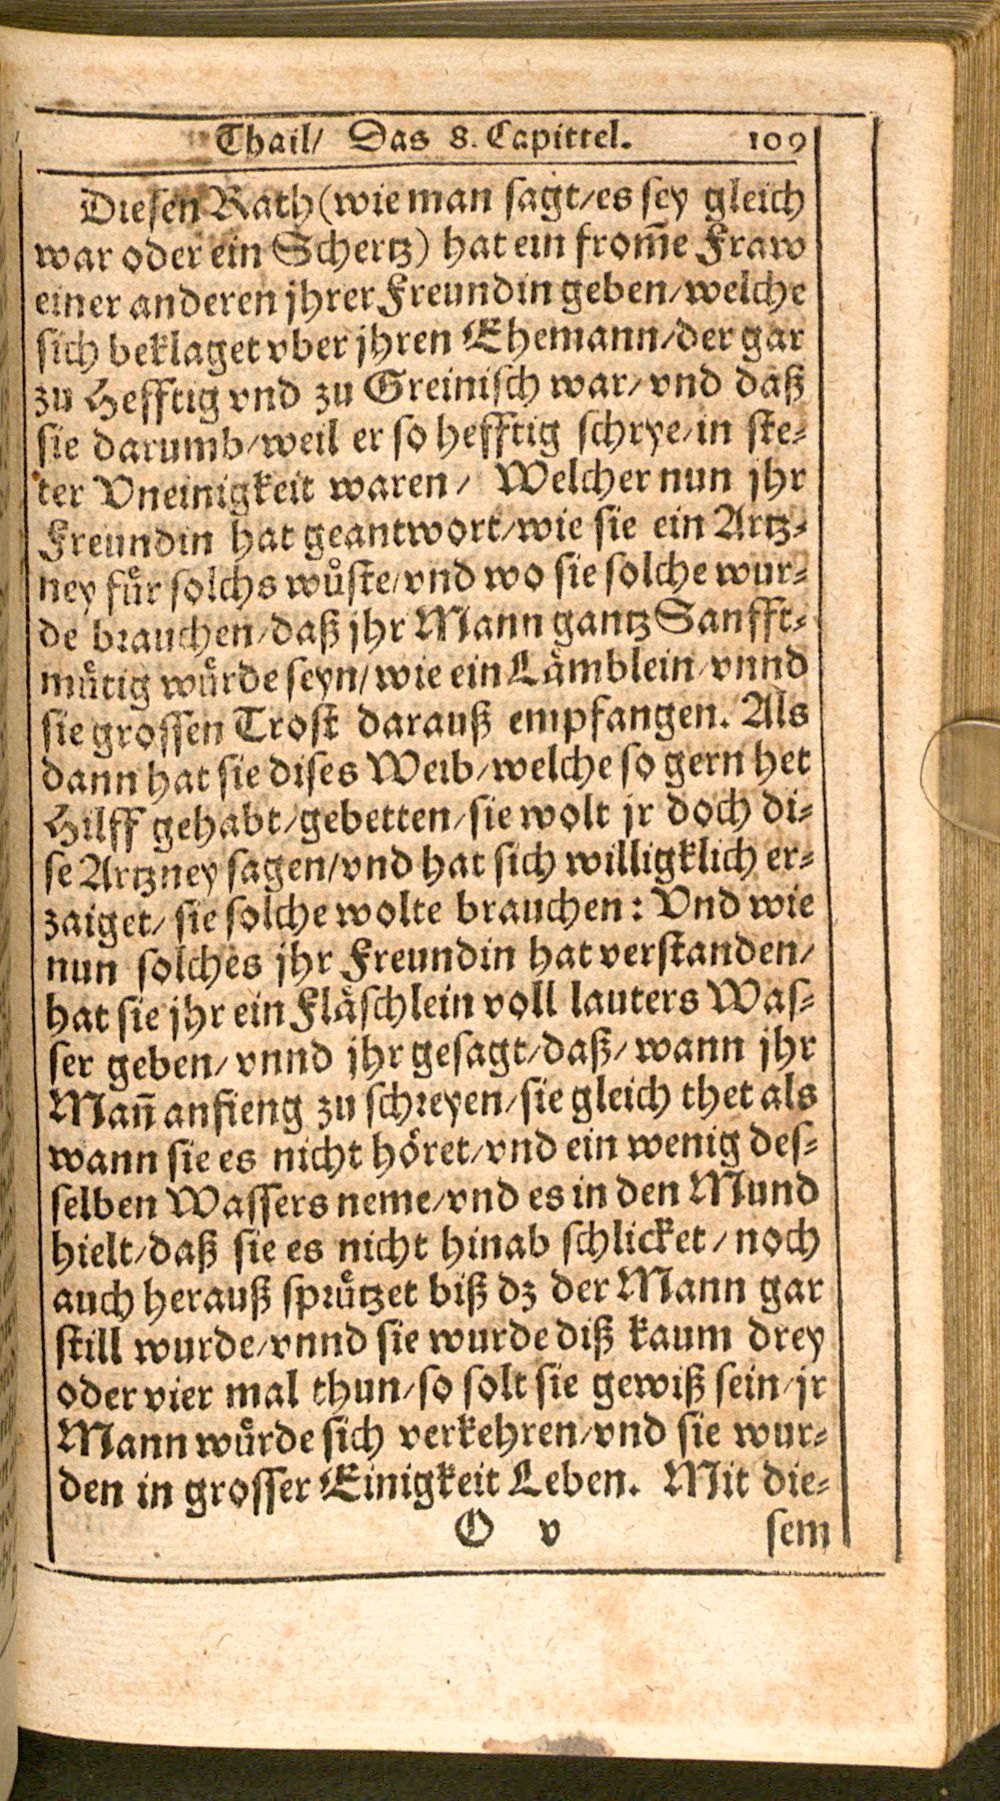 Thail/ Das 8. Capittel. 109
Diesen Rath (wie man sagt/es sey gleich
war oder ein Schertz) hat ein from̄e Fraw
einer anderen jhrer Freundin geben/welche
sich beklaget vber jhren Ehemann/der gar
zu Hefftig vnd zu Greinisch war/vnd daß
sie darumb/weil er so hefftig schrye/in ste-
ter Vneinigkeit waren/ Welcher nun jhr
Freundin hat geantwort/wie sie ein Artz-
ney fuͤr solchs wuͤste/vnd wo sie solche wur-
de brauchen/daß jhr Mann gantz Sanfft-
muͤtig wuͤrde seyn/wie ein Laͤmblein/vnnd
sie grossen Trost darauß empfangen. Als
dann hat sie dises Weib/welche so gern het
Hilff gehabt/gebetten/sie wolt jr doch di-
se Artzney sagen/vnd hat sich willigklich er-
zaiget/sie solche wolte brauchen: Vnd wie
nun solches jhr Freundin hat verstanden/
hat sie jhr ein Flaͤschlein voll lauters Was-
ser geben/vnnd jhr gesagt/daß/wann jhr
Man̄ anfieng zu schreyen/sie gleich thet als
wann sie es nicht hoͤret/vnd ein wenig des-
selben Wassers neme/vnd es in den Mund
hielt/daß sie es nicht hinab schlicket/noch
auch herauß spruͤtzet biß dz der Mann gar
still wurde/vnnd sie wurde diß kaum drey
oder vier mal thun/so solt sie gewiß sein/jr
Mann wuͤrde sich verkehren/vnd sie wur-
den in grosser Einigkeit Leben. Mit die-
O v sem